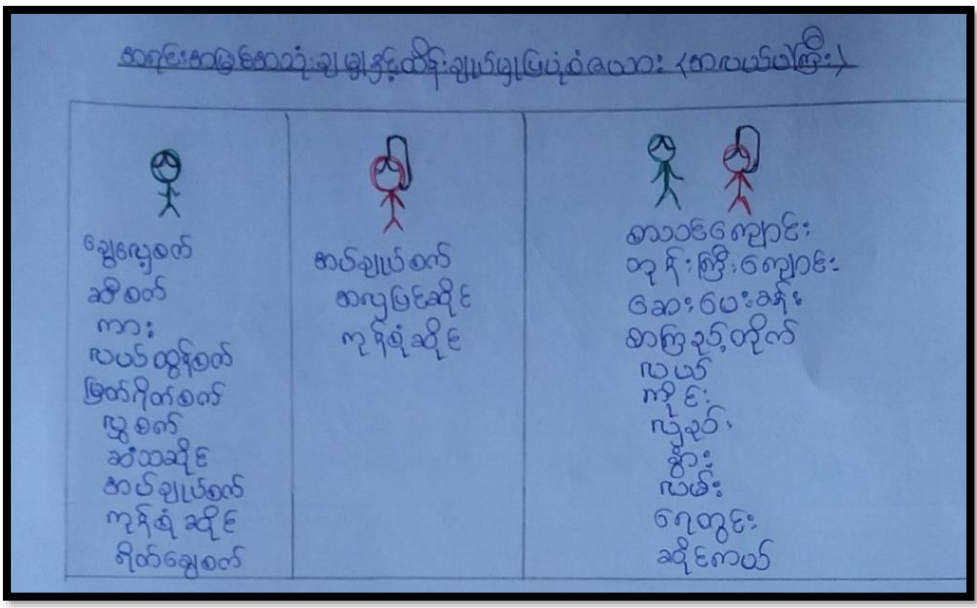 အရင်းအမြစ်အသုံးချမှုနှင့်ထိန်းချုပ်မှုပြပုံစံဇယား (အလယ်ပါကြီး)
ချွေလှေ့စက်
ဆီစက်
ကား
လယ်ထွန်စက်
မြက်ရိတ်စက်
လွှစက်
ဆံသဆိုင်
အပ်ချုပ်စက်
ကုန်စုံဆိုင်
ရိတ်ချွေစက်
အပ်ချုပ်စက်
အလှပြင်ဆိုင်
ကုန်စုံဆိုင်
စာသင်ကျောင်း
ဘုန်းကြီးကျောင်း
ဆေးပေးခန်း
စာကြည့်တိုက်
လယ်
ကိုင်း
လှည်း
နွား
လမ်း
ရေတွင်း
ဆိုင်ကယ်